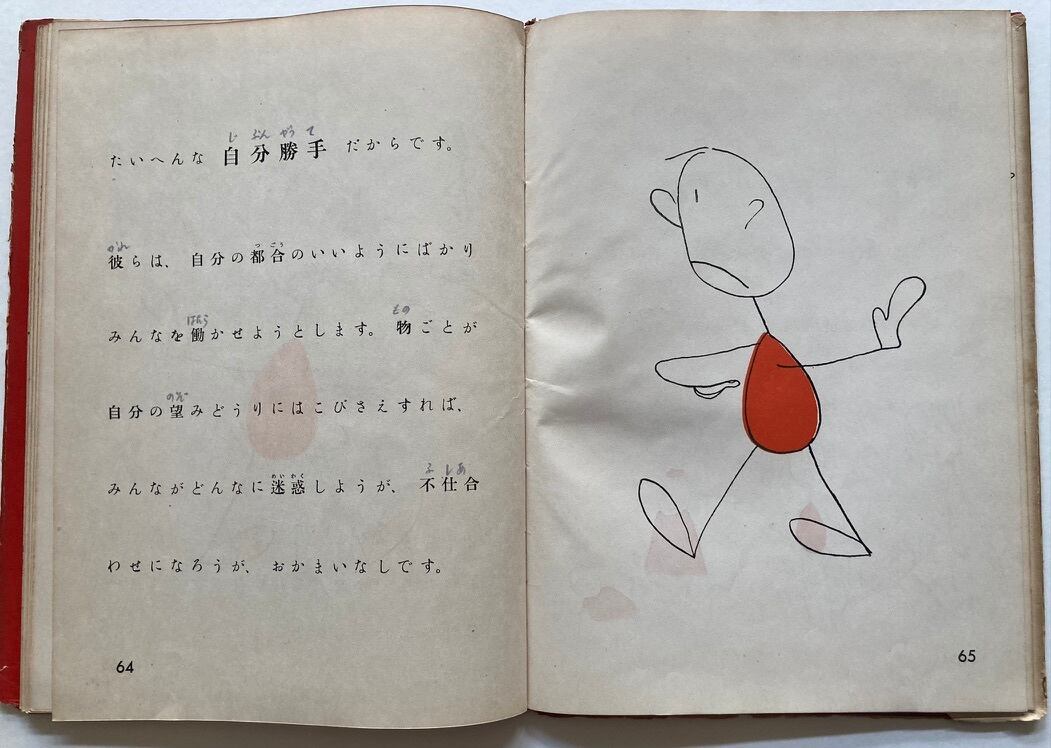 じ ぶん かっ て
たいへんな 自分勝手 だからです。
かれ つ ごう
彼らは、自分の都合のいいようにばかり
はたら もの
みんなを働かせようとします。物ごとが
のぞ
自分の望みどうりにはこびさえすれば、
めい わく ふ し あ
みんながどんなに迷惑しようが、不仕合
わせになろうが、おかまいなしです。
64
65